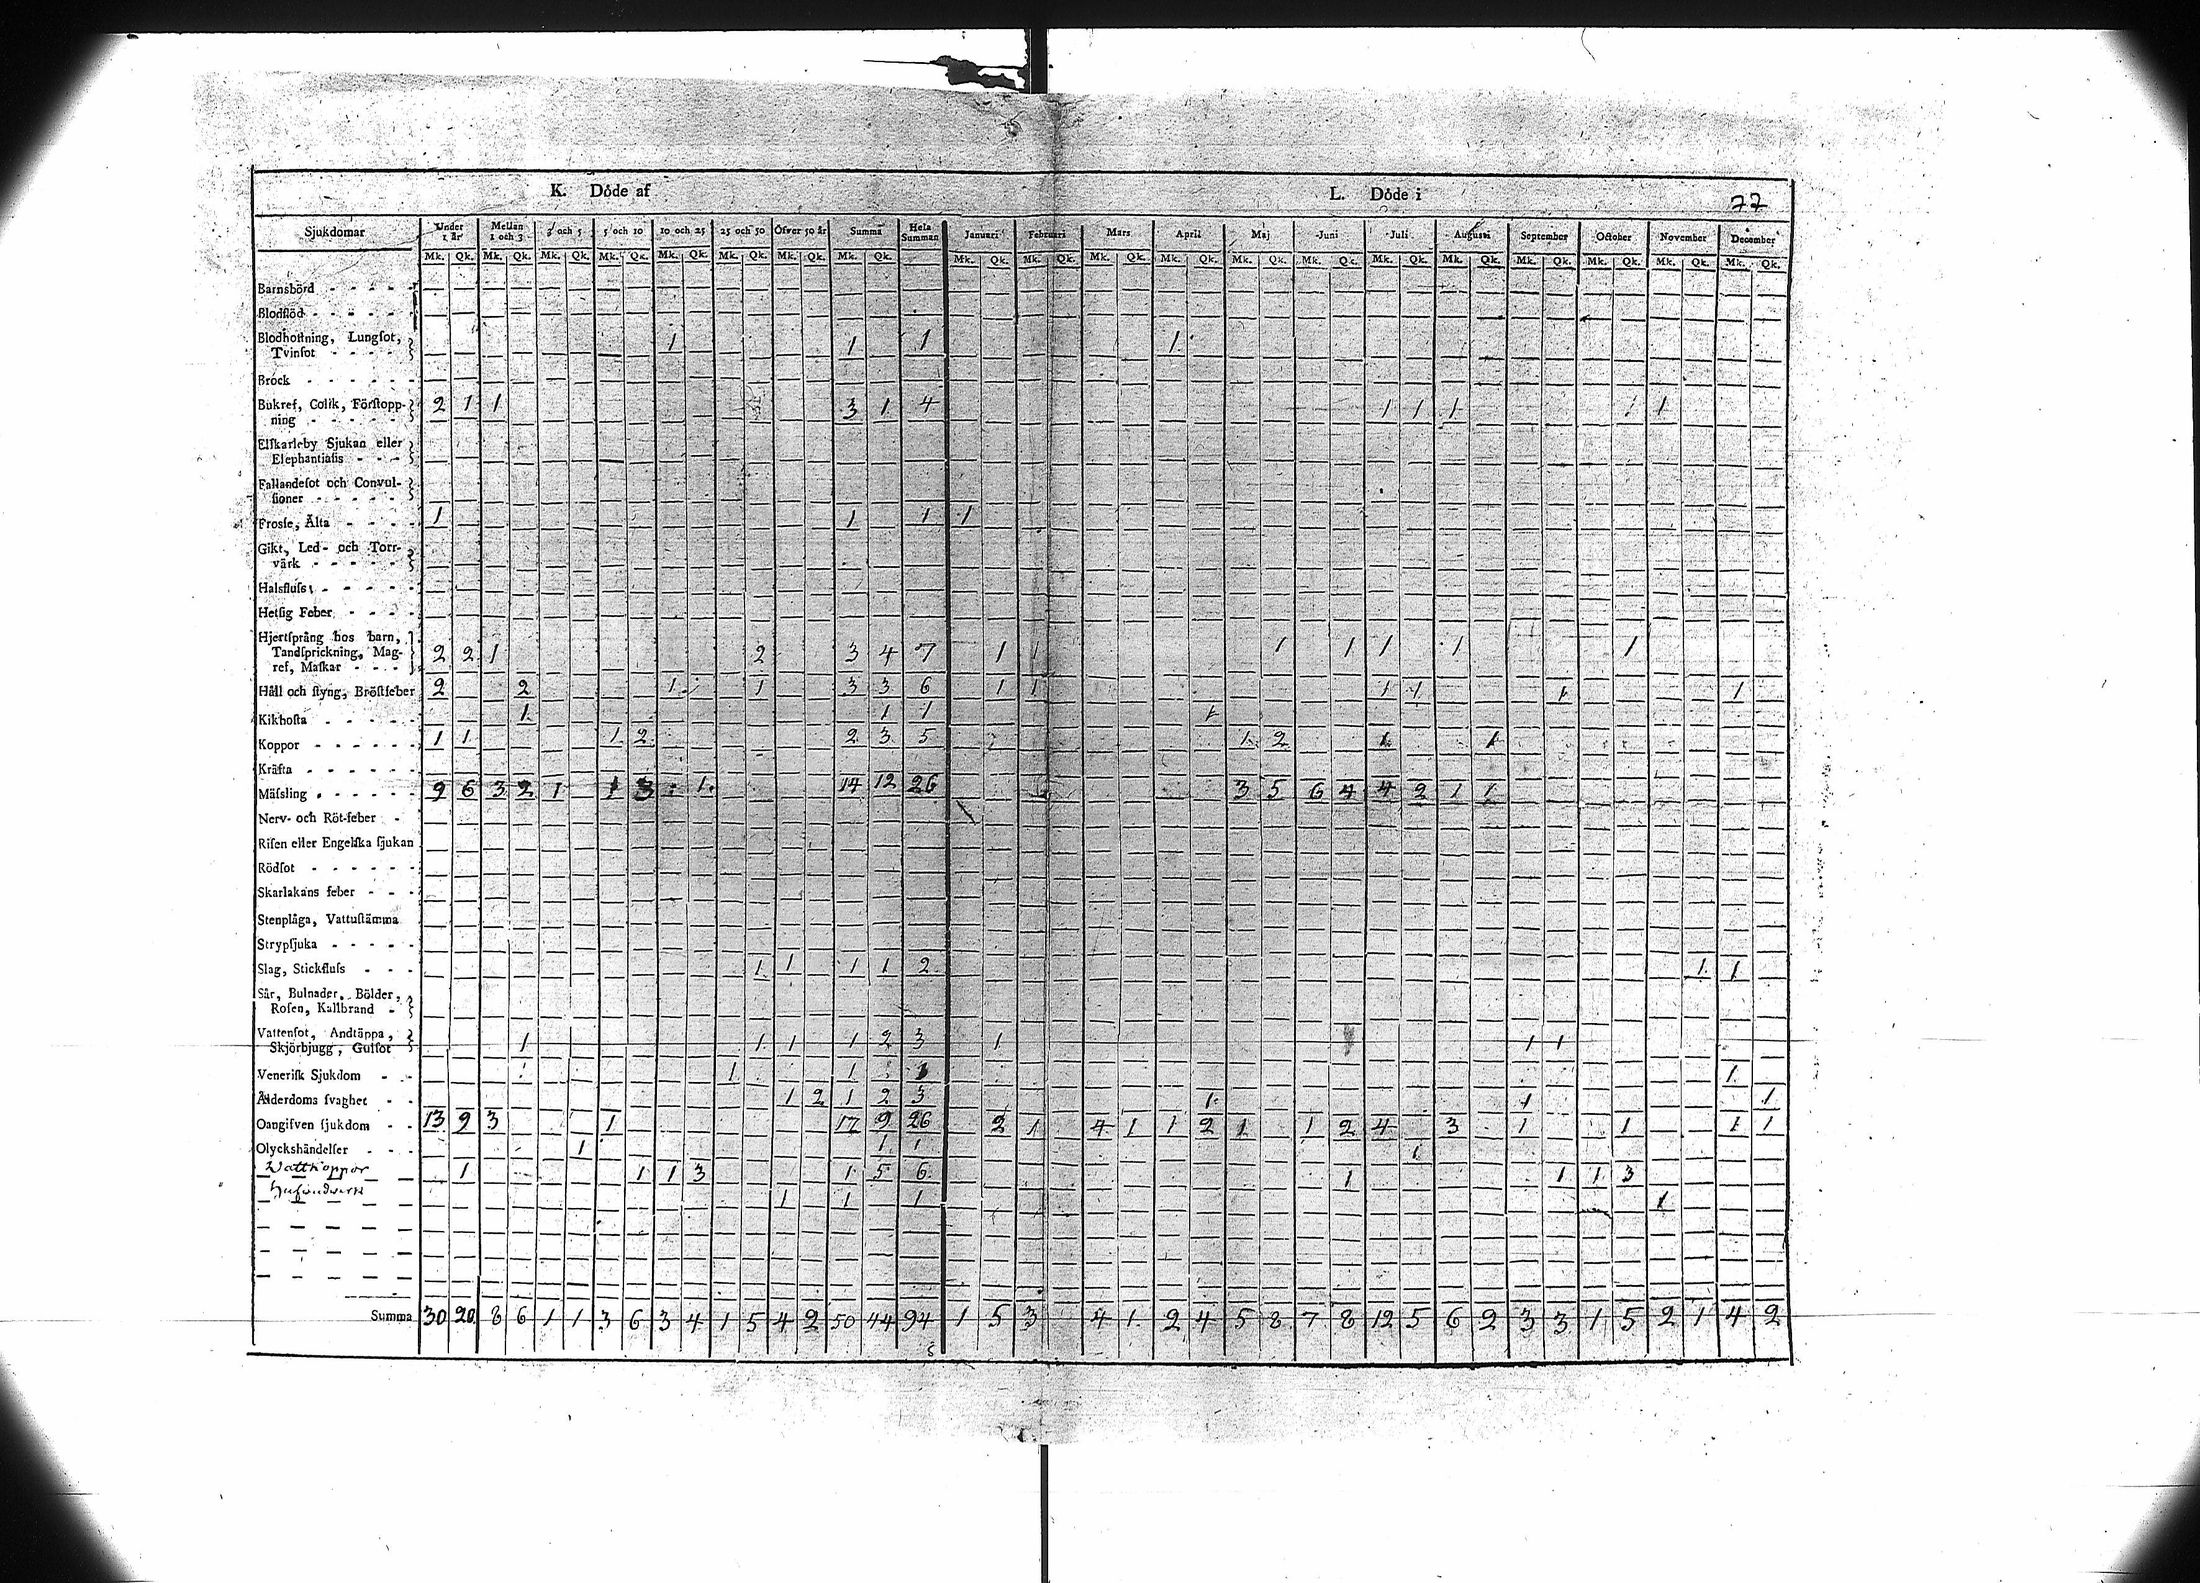 K. Döde af L. Döde i 77
Sjukdomar Under 1 år Mellan 1 och 3 3 och 5 5 och 10 10 och 25 25 och 50 Öfver 50 år Summa Hela Summan Januari Februari Mars April Maj Juni Juli Augusti September October November December
Mk. Qk. Mk. Qk. Mk. Qk. Mk. Qk. Mk. Qk. Mk. Qk. Mk. Qk. Mk. Qk. Mk. Qk. Mk. Qk. Mk. Qk. Mk. Qk. Mk. Qk. Mk. Qk. Mk. Qk. Mk. Qk. Mk. Qk. Mk. Qk. Mk. Qk. Mk. Qk.
Barnsbörd - - - - -
Blodflöd - - - - -
Blodhoſtning, Lungſot,
Tvinſot - - - - 1 1 1 1
Bråck - - - - - -
Bukref, Colik, Förſtopp-
ning - - - - - 2 1 1 3 1 4 1 1 1 1
Elſkarleby Sjukan eller
Elephantiaſis - - -
Fallandeſot och Convul-
ſioner - - - - -
Frosſe, Älta - - - - 1 1 1 1
Gikt, Led- och Torr-
värk - - - - -
Halsfluſs - - - - -
Hetſig Feber - - - -
Hjertſprång hos barn,
Tandſprickning, Mag-
ref, Maſkar - - - 2 2 1 2 3 4 7 1 1 1 1 1 1 1
Håll och ſtyng, Bröſtfeber 2 2 1 1 3 3 6 1 1 1 1 1 1
Kikhoſta - - - - - 1 1 1 1
Koppor - - - - - - 1 1 1 2 2 3 5 1 2 1 1
Kräfta - - - - - -
Mäſsling - - - - - 9 6 3 2 1 1 3 1 14 12 26 3 5 6 4 4 2 1 1
Nerv- och Röt-feber -
Riſen eller Engelſka ſjukan
Rödſot - - - - - -
Skarlakans feber - - -
Stenplåga, Vattuſtämma
Strypſjuka - - - - -
Slag, Stickfluſs - - - 1 1 1 1 2 1 1
Sår, Bulnader, Bölder,
Roſen, Kallbrand -
Vattenſot, Andtäppa,
Skjörbjugg, Gulſot 1 1 1 1 2 3 1 1 1
Veneriſk Sjukdom - - 1 1 1 1
Ålderdoms ſvaghet - - 1 2 1 2 3 1 1 1
Oangifven ſjukdom - - 13 9 3 1 17 9 26 2 1 4 1 1 2 1 1 2 4 3 1 1 1 1
Olyckshändelſer - - - 1 1 1 1
Wattkoppor 1 1 1 3 1 5 6 1 1 1 3
1 1 1 1
Summa 30 20 8 6 1 1 3 6 3 4 1 5 4 2 50 44 94 1 5 3 4 1 2 4 5 8 7 8 12 5 6 2 3 3 1 5 2 1 4 2